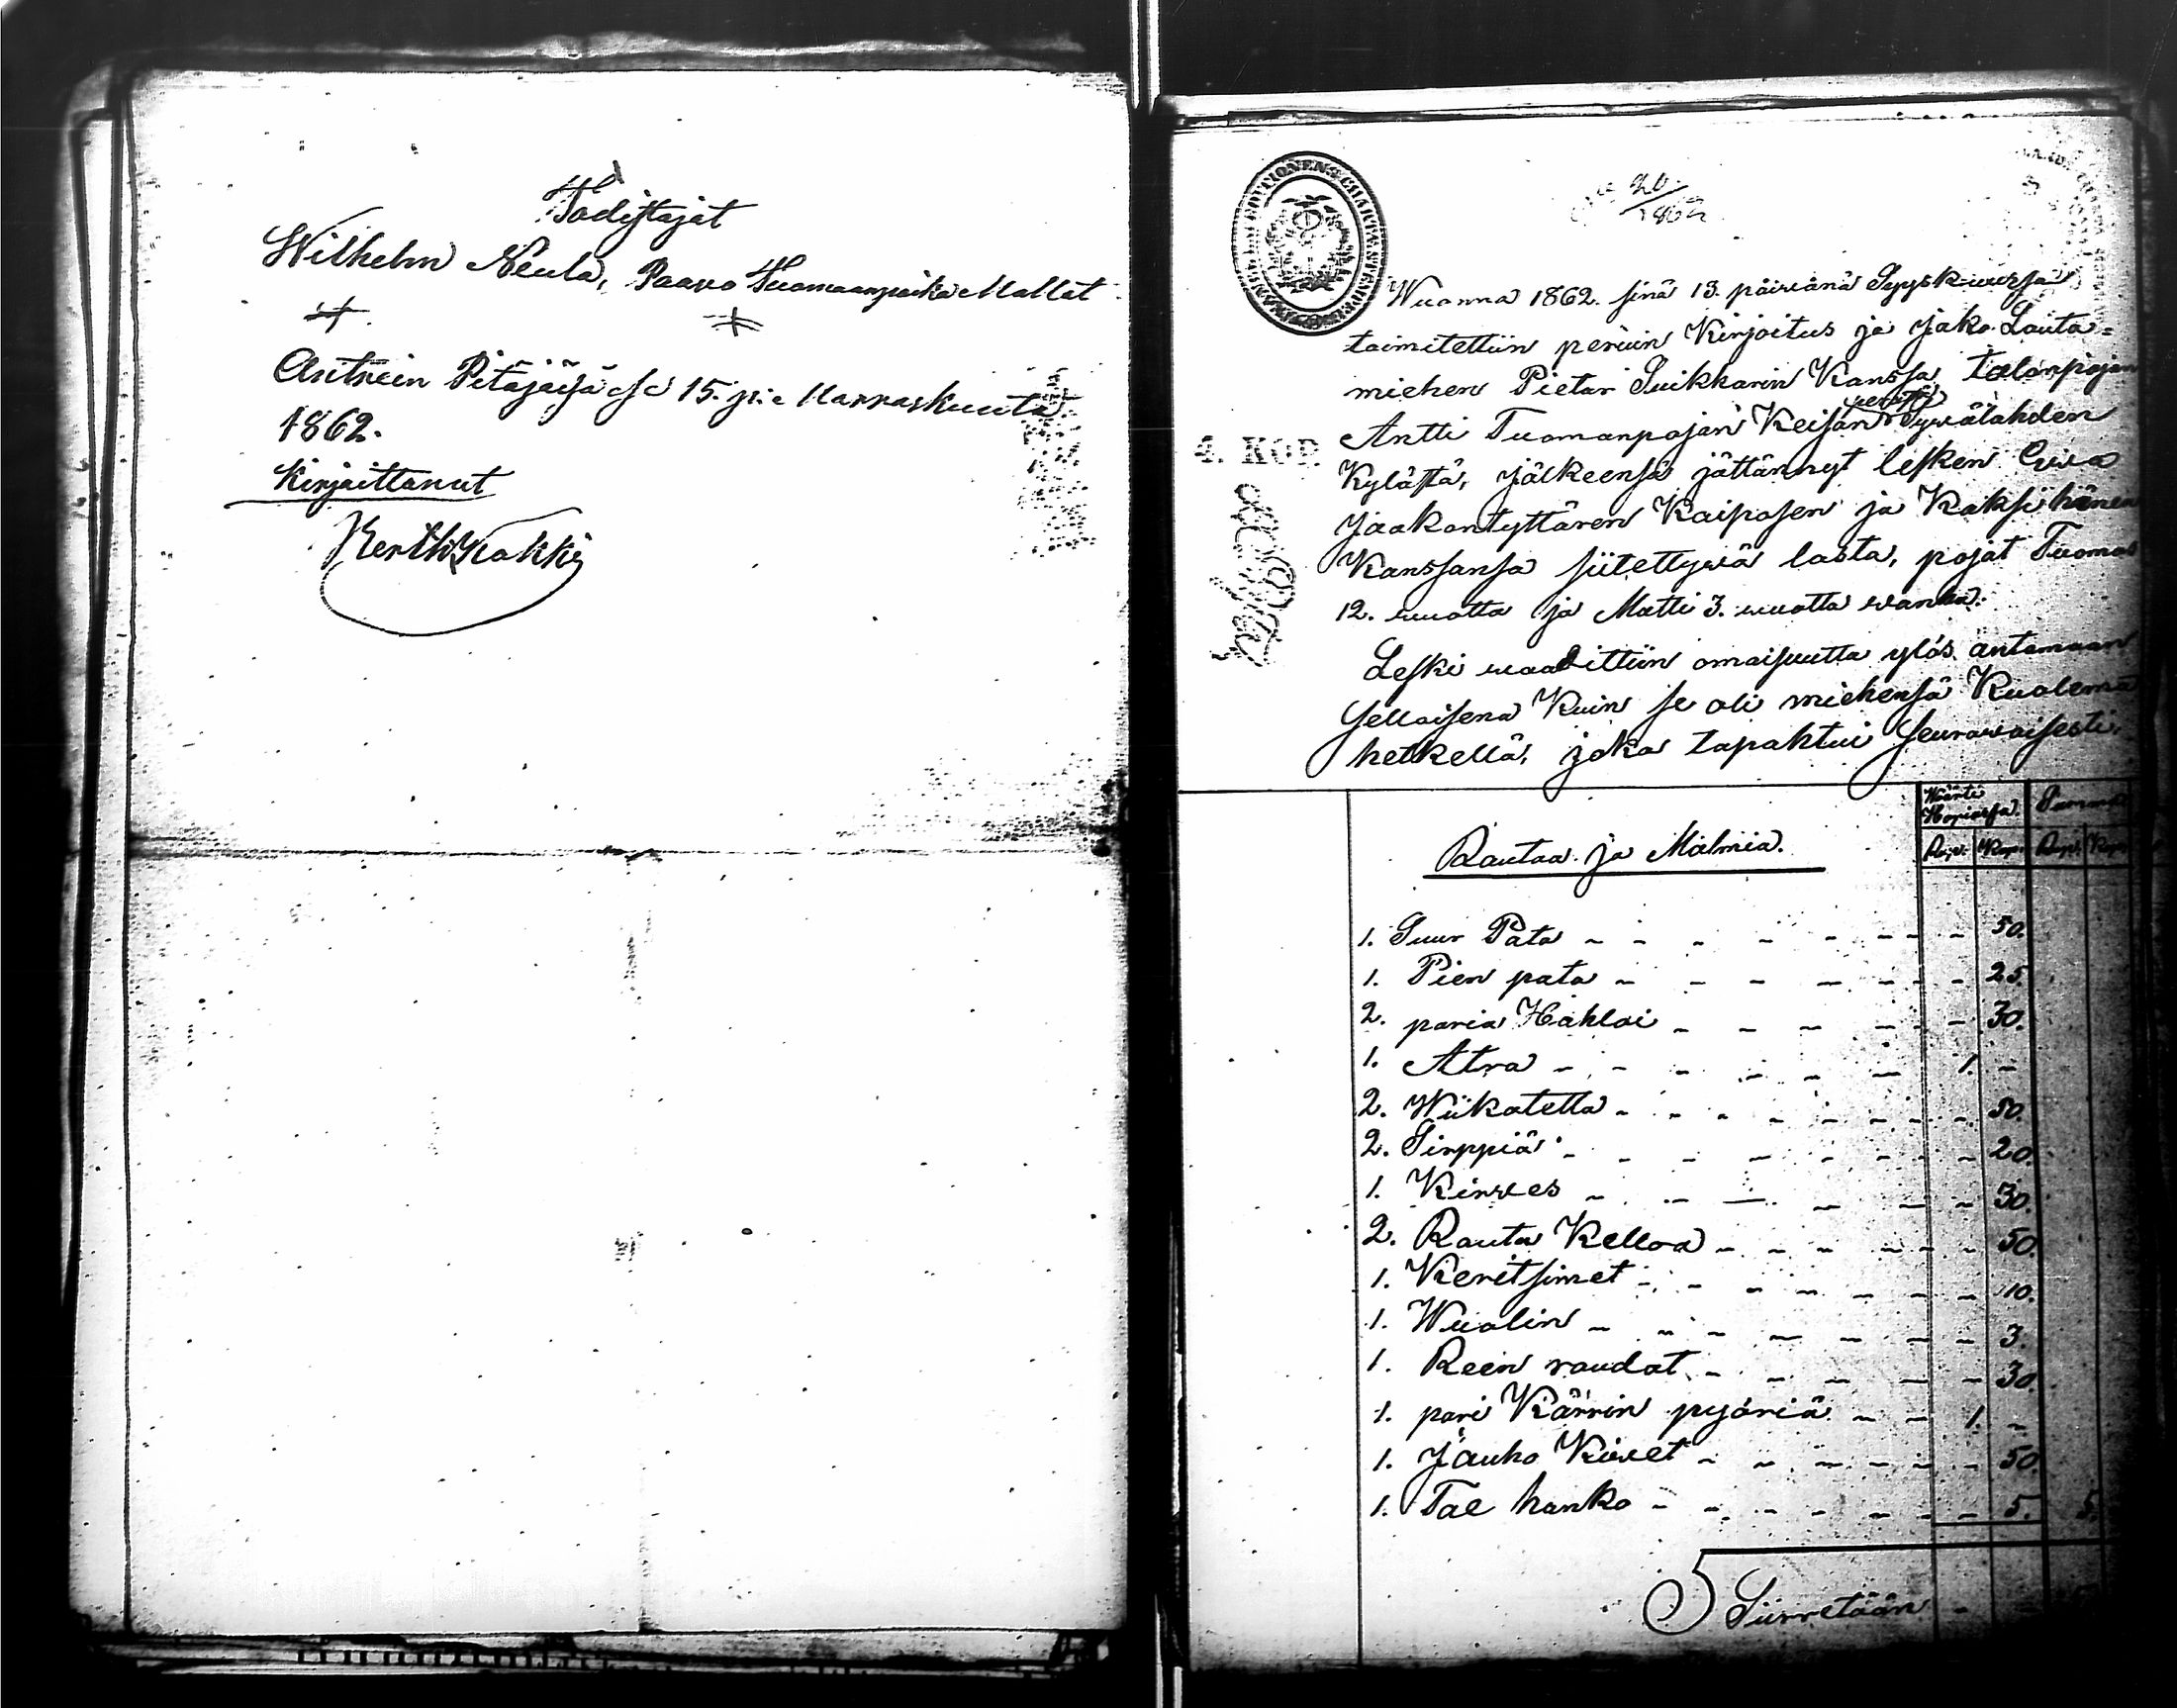 Todistajat
Wilhelm Neula, Paavo Tuomaanpoika Mallat
Antrein Pitäjässä se 15. p:a Marraskuuta
1862.
Kirjoittanut
20
1862
Wuonna 1862. sinä 13. päivänä Syyskuussa
toimitettiin peruin Kirjoitus ja jako Lauta-
miehen Pietar Suikkarin Kanssa, talonpojan
Antti Tuomanpojan Keisan perästä Sywälahden
Kylästä, jälkeensä jättännyt lesken Ewa
Jaakontyttären Kaiposen ja Kaksi hänen
Kanssansa siitettywä lasta, pojat Tuomas
12. wuotta ja Matti 3. wuotta wanha.
4. KOP.
Leski waadittiin omaisuutta ylös antamaan
sellaisena Kuin se oli miehensä Kuolema
hetkellä, joka tapahtui seurawaisesti.
Wärti Hopiassa. Summa
Rup. Kop. Rup. Kop.
Rautaa ja Malmia.
1. Suur Pata - - - - 50.
1. Pien pata - - - - 25.
2. paria Hahloi - - - - 30.
1. Atra - - - - 1. -
2. Wiikatetta - - - - 50.
2. Sirppiä - - - - 20.
1. Kirwes - - - - 30.
2. Rauta Kelloa - - - - 50.
1. Keritsimet - - - - 10.
1. Wuolin - - - - 3.
1. Reen raudat - - - - 30.
1. pari Kärrin pyöriä - - 1. -
1. Jauho Kiwet - - - - 50.
1. Tae hanko - - - - 5. 5.
Siirretään -